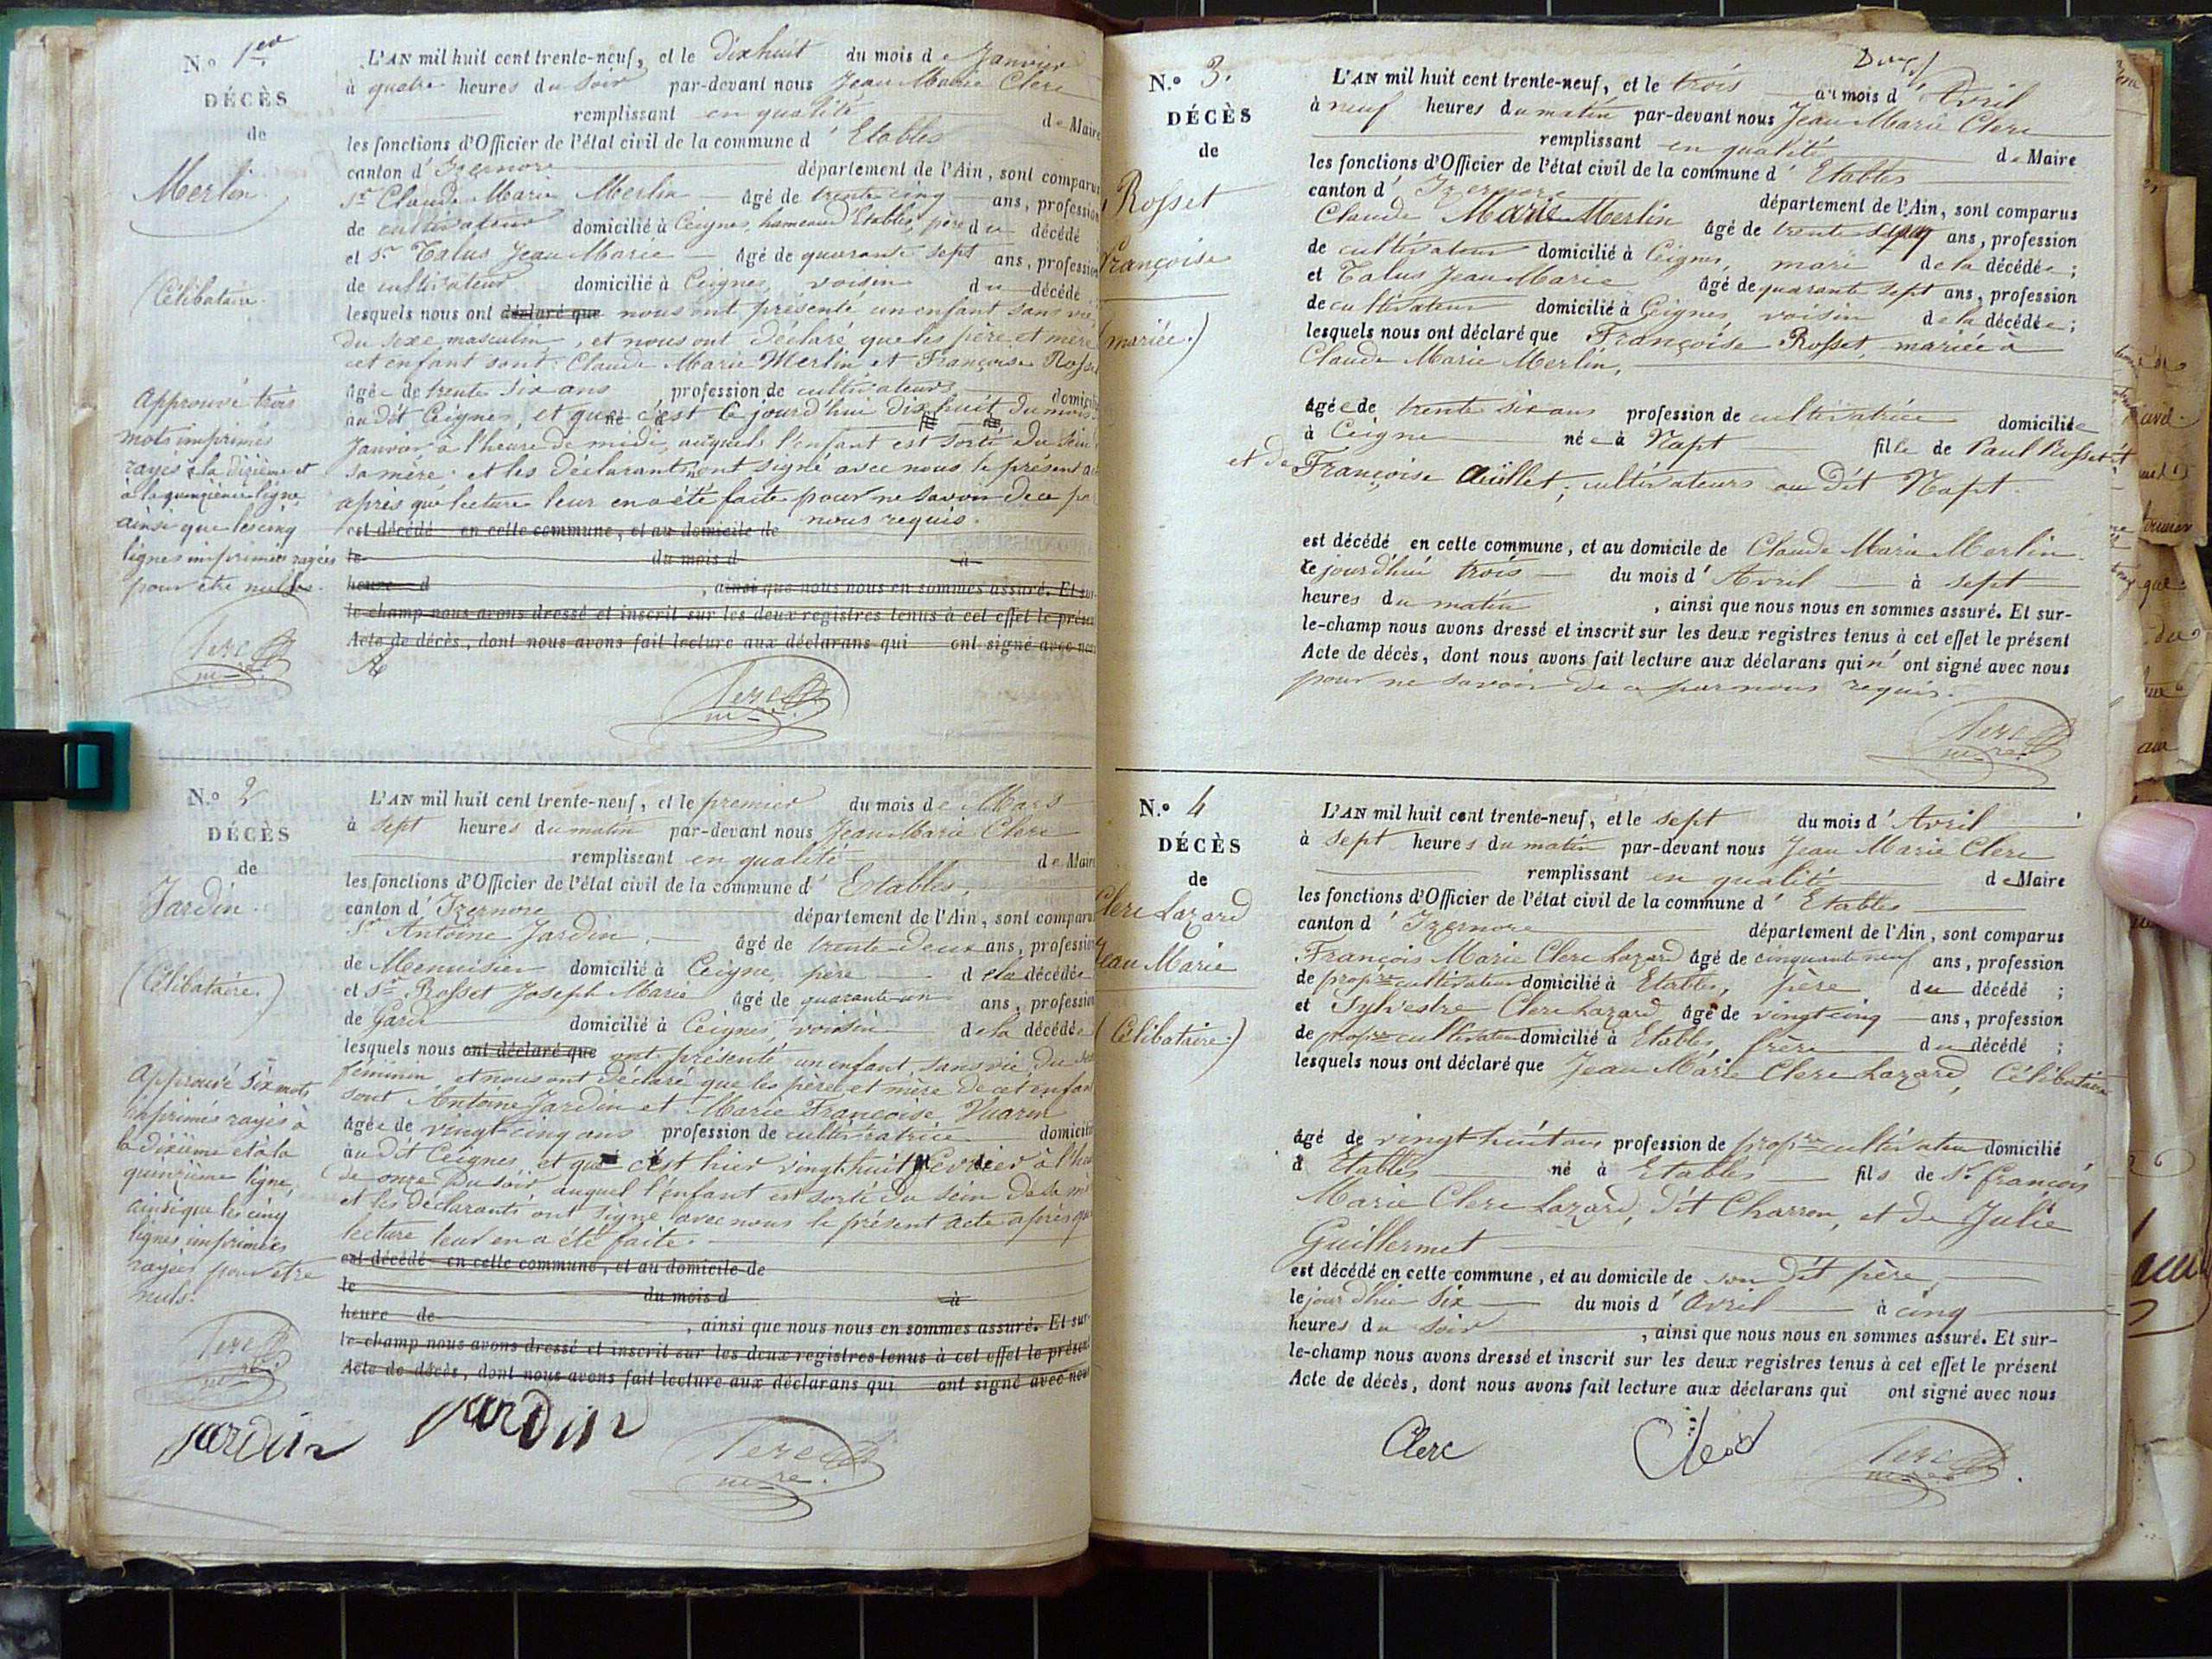 N.o 1er
DÉCÈS
de
Merlin.
(Célibataire.
Approuvé trois
mots imprimés
rayés à la dixième et
à la quinzième ligne,
ainsi que les cinq
lignes imprimées rayées
pour être nulles.
Clerc
L'AN mil huit cent trente-neuf, et le dixhuit du mois de Janvier
à quatre heures du soir par-devant nous Jean Marie Clerc
remplissant en qualité de Maire
les fonctions d'Officier de l'état civil de la commune d' Etables
canton d' Izernore département de l'Ain, sont comparus
Sr. Claude Marie Merlin âgé de trente cinq ans, profession
de cultivateur domicilié à Ceignes, hameau d'Etables, père du décédé
et Sr. Talus Jean Marie âgé de quarante sept ans, profession
de cultivateur domicilié à Ceignes, voisin du décédé
lesquels nous ont déclaré que nous ont présenté un enfant sans vie,
du sexe masculin, et nous ont déclaré que les père et mère
cet enfant sont: Claude Marie Merlin et Françoise Rosset
âgée de trente six ans, profession de cultivateurs domicil
au dit Ceignes, et que c'est ce jourd'hui dix huit du mois
Janvier, à l'heure de midi, auquel l'enfant est sorti du sein
sa mère. et les déclarants n'ont signé avec nous le présent a
après que lecture leur en a été faite pour ne savoir de ce par
nous requis.
est décédé en cette commune, et au domicile de
le du mois d à
heure d , ainsi que nous nous en sommes assuré. Et sur-
le-champ nous avons dressé et inscrit sur les deux registres tenus à cet effet le présen
Acte de décès, dont nous avons fait lecture aux déclarans qui ont signé avec nous
Clerc
N.o 2
DÉCÈS
de
Jardin.
(Célibataire.)
Approuvé six mots
imprimés rayés à
la dixième et à la
quinzième ligne,
ainsi que les cinq
lignes imprimées
rayées, pour être
nuls.
Clerc
L'AN mil huit cent trente-neuf, et le premier du mois de Mars
à sept heures du matin par-devant nous Jean Marie Clerc
remplissant en qualité de Maire
les fonctions d'Officier de l'état civil de la commune d' Estables,
canton d' Izernore département de l'Ain, sont comparus
Sr Antoine Jardin, âgé de trente-deux ans, profession
de Menuisier domicilié à Ceigne, père de la décédée
et Sr. Rosset Joseph Marie âgé de quarante-un ans, profession
de Garde domicilié à Ceignes, voisin de la décédée
lesquels nous ont déclaré que ont présenté un enfant, sans vie, du sexe
féminin, et nous ont déclaré que les père et mère de cet enfant
sont Antoine Jardin et Marie Françoise Vuarin
âgée de vingt-cinq ans profession de cultivatrice domicili
au dit Ceignes, et que c'est hier vingt-huit février à l'heu
de onze du soir, auquel l'enfant est sorti du sein de la mè
et les déclarants ont signé avec nous le présent acte après que
lecture leur en a été faite.
est décédé en cette commune, et au domicile de
le du mois d à
heure de , ainsi que nous nous en sommes assuré. Et sur-
le-champ nous avons dressé et inscrit sur les deux registres tenus à cet effet le présent
Acte de décès, dont nous avons fait lecture aux déclarans qui ont signé avec nous
jardin jardin Clerc
N.o 3.
DÉCÈS
de
Rosset
Françoise
(mariée.)
L'AN mil huit cent trente-neuf, et le trois du mois d' Avril
à neuf heures du matin par-devant nous Jean Marie Clerc
remplissant en qualité de Maire
les fonctions d'Officier de l'état civil de la commune d' Etables
canton d' Izernore département de l'Ain, sont comparus
Claude Marie Merlin âgé de trente sept ans, profession
de cultivateur domicilié à Ceignes, mari de la décédée;
et Talus Jean Marie âgé de quarante sept ans, profession
de cultivateur domicilié à Ceignes, voisin de la décédée;
lesquels nous ont déclaré que Françoise Rosset, mariée à
Claude Marie Merlin,
âgée de trente six ans profession de cultivatrice domiciliée
à Ceigne née à Napt fille de Paul Rosset
et de Françoise Aüillet, cultivateurs au dit Napt.
est décédé en cette commune, et au domicile de Claude Marie Merlin.
le jourd'hui trois du mois d' Avril à sept
heures du matin, ainsi que nous nous en sommes assuré. Et sur-
le-champ nous avons dressé et inscrit sur les deux registres tenus à cet effet le présent
Acte de décès, dont nous avons fait lecture aux déclarans qui n' ont signé avec nous
pour ne savoir de ce par nous requis.
Clerc
N.o 4
DÉCÈS
de
Clerc Lazard
Jean Marie
(Célibataire.)
L'AN mil huit cent trente-neuf, et le sept du mois d' Avril
à sept heures du matin par-devant nous Jean Marie Clerc
remplissant en qualité de Maire
les fonctions d'Officier de l'état civil de la commune d' Etables
canton d' Izernore département de l'Ain, sont comparus
François Marie Clerc Lazard âgé de cinquante neuf ans, profession
de propre cultivateur domicilié à Etables, père du décédé;
et Sylvestre Clerc Lazard, âgé de vingt cinq ans, profession
de propre cultivateur domicilié à Etables, frère du décédé;
lesquels nous ont déclaré que Jean Marie Clerc Lazard, Célibataire
âgé de vingt huit ans profession de propre cultivateur domicilié
à Etables né à Etables fils de Sr. François
Marie Clerc Lazard, dit Charron, et de Julie
Guillermet
est décédé en cette commune, et au domicile de son dit père,
le jour d'hier six du mois d' Avril à cinq
heures du soir, ainsi que nous nous en sommes assuré. Et sur-
le-champ nous avons dressé et inscrit sur les deux registres tenus à cet effet le présent
Acte de décès, dont nous avons fait lecture aux déclarans qui ont signé avec nous
Clerc Clerc Clerc